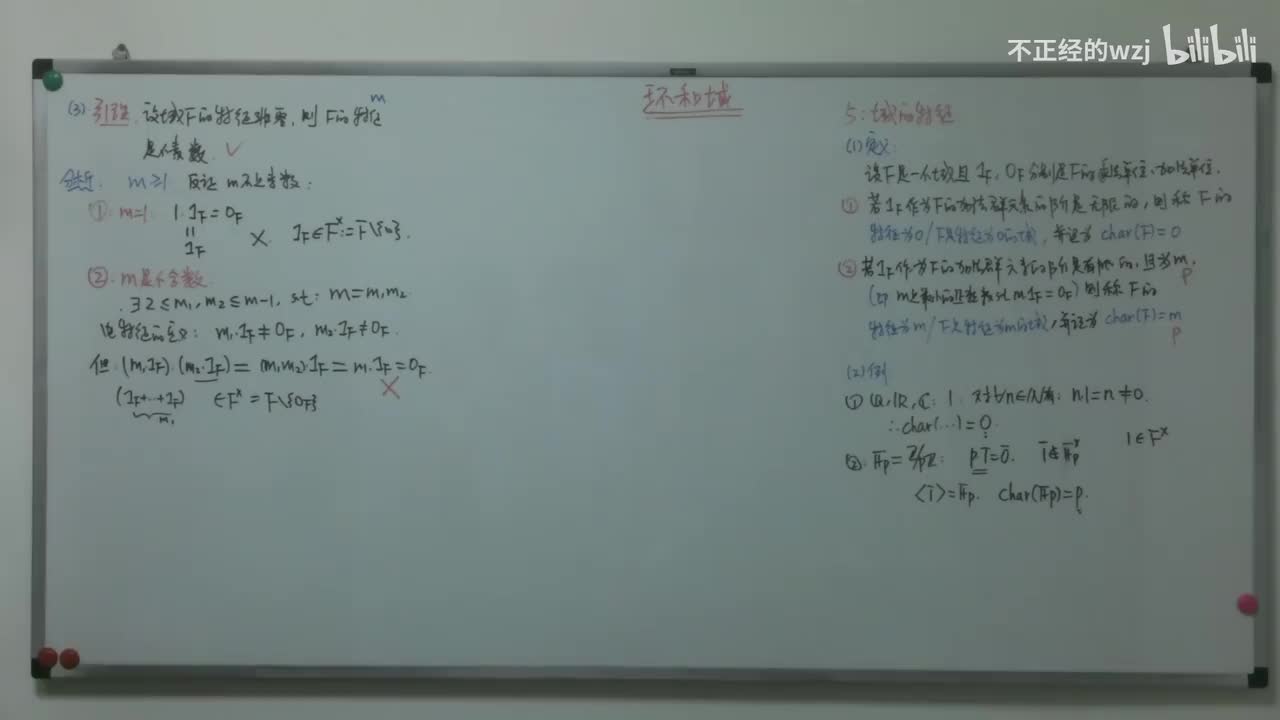 不正经的wzj bilibili
环和域
(3) 引理. 设域F的特征非零, 则 F的特征 m
是个素数. ✓
分析. m≥1 反证 m不是素数:
①. m=1. 1·1F = 0F
||
1F
× 1F∈F^× := F\{0}.
②. m是个合数.
∃ 2≤m1, m2≤m-1, st: m=m1m2
由特征的定义: m1·1F≠0F, m2·1F≠0F.
但 (m1·1F)·(m2·1F) = (m1m2)·1F = m·1F = 0F.
×
(1F+…+1F) ∈F^× = F\{0F}
m1
5: 域的特征
(1) 定义:
设F是一个域且 1F, 0F 分别是F的乘法单位、加法单位.
① 若1F作为F的加法群元素的阶是无限的, 则称 F的
特征为0/F是特征为0的域, 并记为 char(F)=0
② 若1F作为F的加法群元素的阶是有限的, 且为m,
p
(即 m是最小的正整数st m·1F=0F) 则称 F的
特征为m/F是特征为m的域, 并记为 char(F)=m
p
(2) 例
① Q, R, C: 1. 对∀n∈N有: n1=n≠0.
∴char(…)=0.
②. Fp=Z/pZ: p1̄=0̄. 1̄∈Fp^× 1∈F^×
<1̄>=Fp. char(Fp)=p.